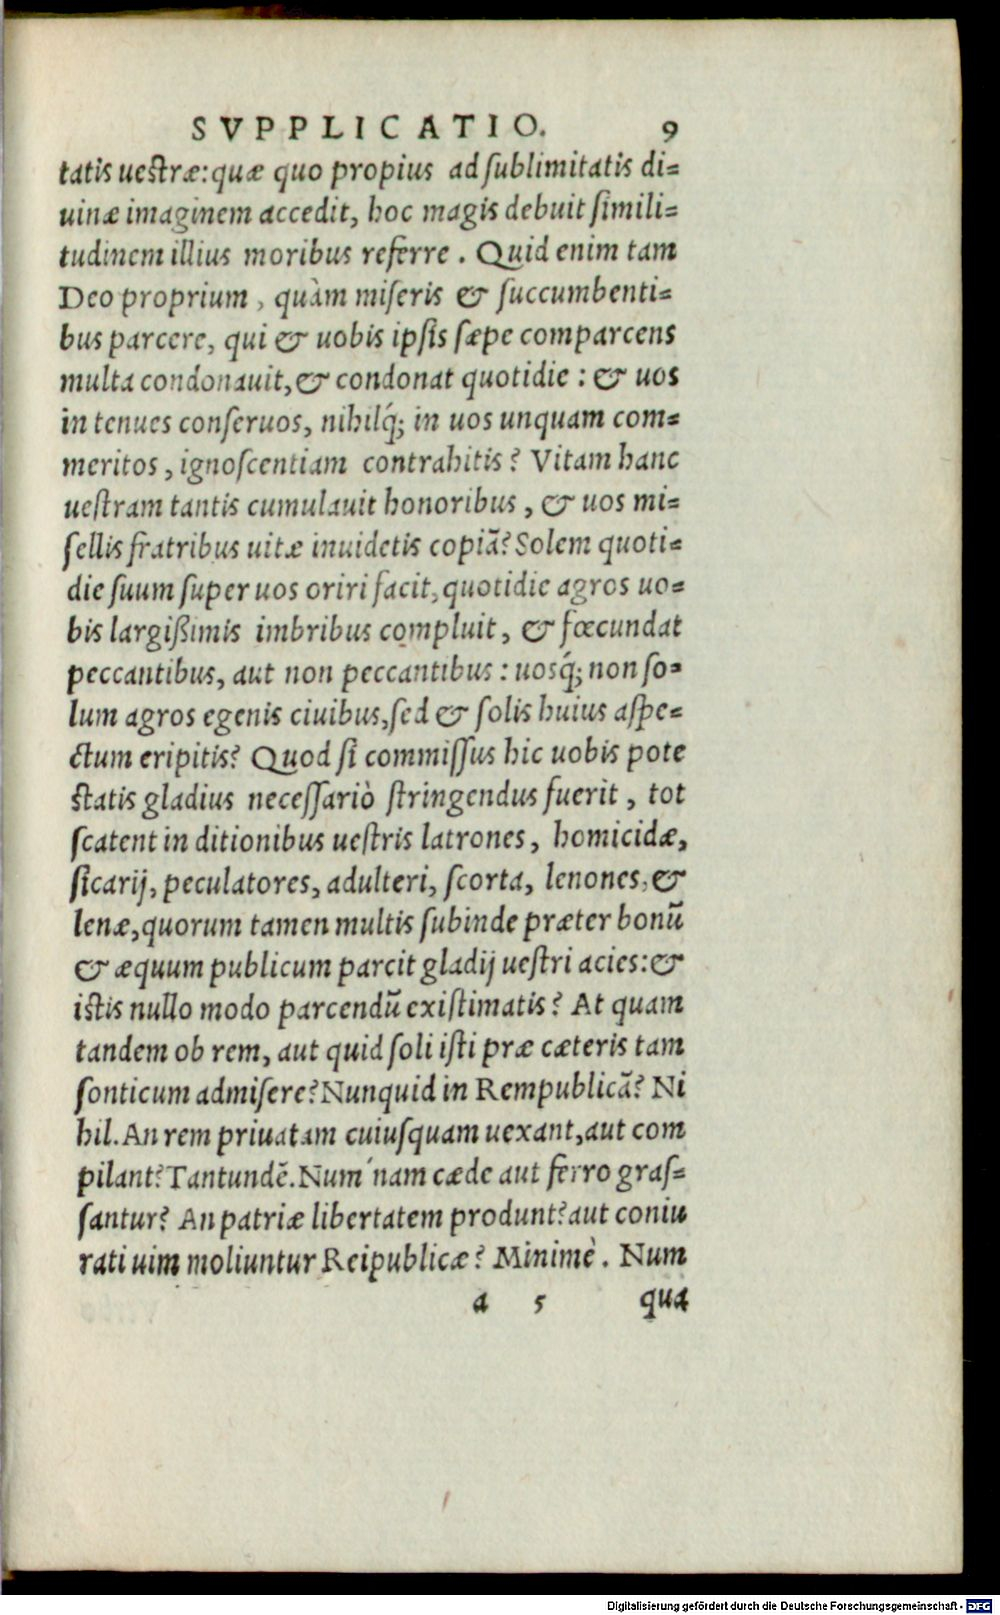 SVPPLICATIO. 9
tatis uestræ: quæ quo propius ad sublimitatis di=
uinæ imaginem accedit, hoc magis debuit simili=
tudinem illius moribus referre. Quid enim tam
Deo proprium, quàm miseris & succumbenti=
bus parcere, qui & uobis ipsis sæpe comparcens
multa condonauit, & condonat quotidie: & uos
in tenues conseruos, nihilq́; in uos unquam com=
meritos, ignoscentiam contrahitis? Vitam hanc
uestram tantis cumulauit honoribus, & uos mi=
sellis fratribus uitæ inuidetis copiã? Solem quoti=
die suum super uos oriri facit, quotidie agros uo=
bis largißimis imbribus compluit, & fœcundat
peccantibus, aut non peccantibus: uosq́; non so=
lum agros egenis ciuibus, sed & solis huius aspe=
ctum eripitis? Quod si commissus hic uobis pote
statis gladius necessariò stringendus fuerit, tot
scatent in ditionibus uestris latrones, homicidæ,
sicarij, peculatores, adulteri, scorta, lenones, &
lenæ, quorum tamen multis subinde præter bonũ
& æquum publicum parcit gladij uestri acies: &
istis nullo modo parcendũ existimatis? At quam
tandem ob rem, aut quid soli isti præ cæteris tam
sonticum admisere? Nunquid in Rempublicã? Ni
hil. An rem priuatam cuiusquam uexant, aut com
pilant? Tantundẽ. Num´nam cæde aut ferro gras=
santur? An patriæ libertatem produnt? aut coniu
rati uim moliuntur Reipublicæ? Minimè. Num
a 5 qua
Digitalisierung gefördert durch die Deutsche Forschungsgemeinschaft - DFG